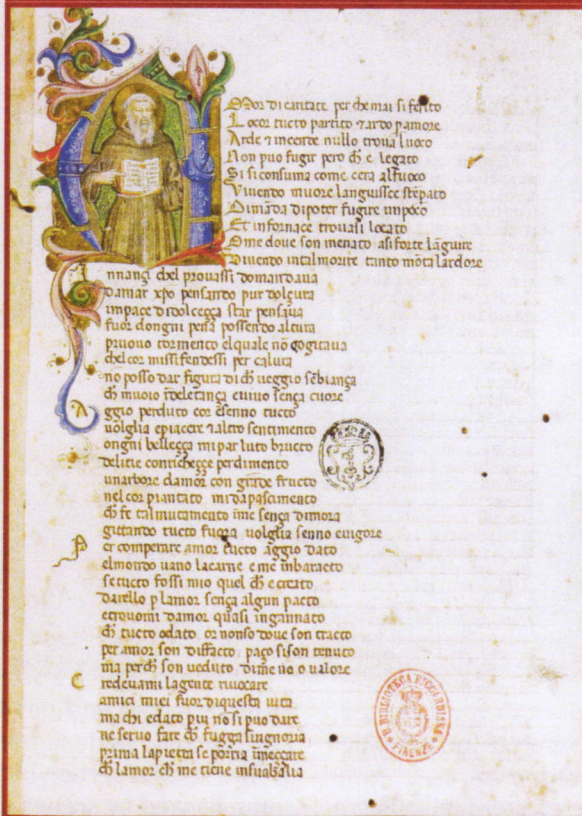 Mor di caritate perche mai si ferito
Locor tucto partito & ardo p amore
Arde & incende nullo trova luoco
Non puo fugir pero ch e legato
Si si consuma come cera al fuoco
Vivendo muore languisce stẽpato
Dimãda di poter fugire um poco
Et in fornace trovasi locato
Ome dove son menato a si forte lãguire
Vivendo in tal morire tanto mõta lardore
nnançi chel provassi domandava
damar xp̃o pensando pur dolçura
impace di dolcecça star pensava
fuor dongni pena possendo altura
pruovo tormento elquale nõ cogitava
chel cor mi si fendessi per calura
nõ posso dar figura di ch̃ veggio sẽbiança
ch̃ muoio ĩ delectança e vivo sença cuore
A ggio perduto cor e senno tucto
volglia e piacere & altro sentimento
ongni bellecça mi par luto brucco
delitie con richecçe perdimento
un arbore damor con grãde fructo
nel cor piantato mi da pascimento
ch̃ fe tal mutamento ĩ me sença dimora
gictando tucto fuora volglia senno e vigore
P er comperare amor tucto aggio dato
el mondo vano la carne e me in baracto
se tucto fossi mio quel ch̃ e creato
darello p lamor sença algun pacto
e trovomi damor quasi ingannato
ch̃ tucto o dato or non so dove son tracto
per amor son disfacto paço si son tenuto
ma perch̃ son veduto di me no o valore
C redevami la gente rivocare
amici miei fuor di questa via
ma chi e dato piu no si puo dare
ne servo fare ch̃ fugga singnoria
prima la pietra se poria ĩmeccare
ch̃ lamor ch̃ me tiene in sua balia
R. BIBLIOTECA RICCARDIANA
FIRENZE